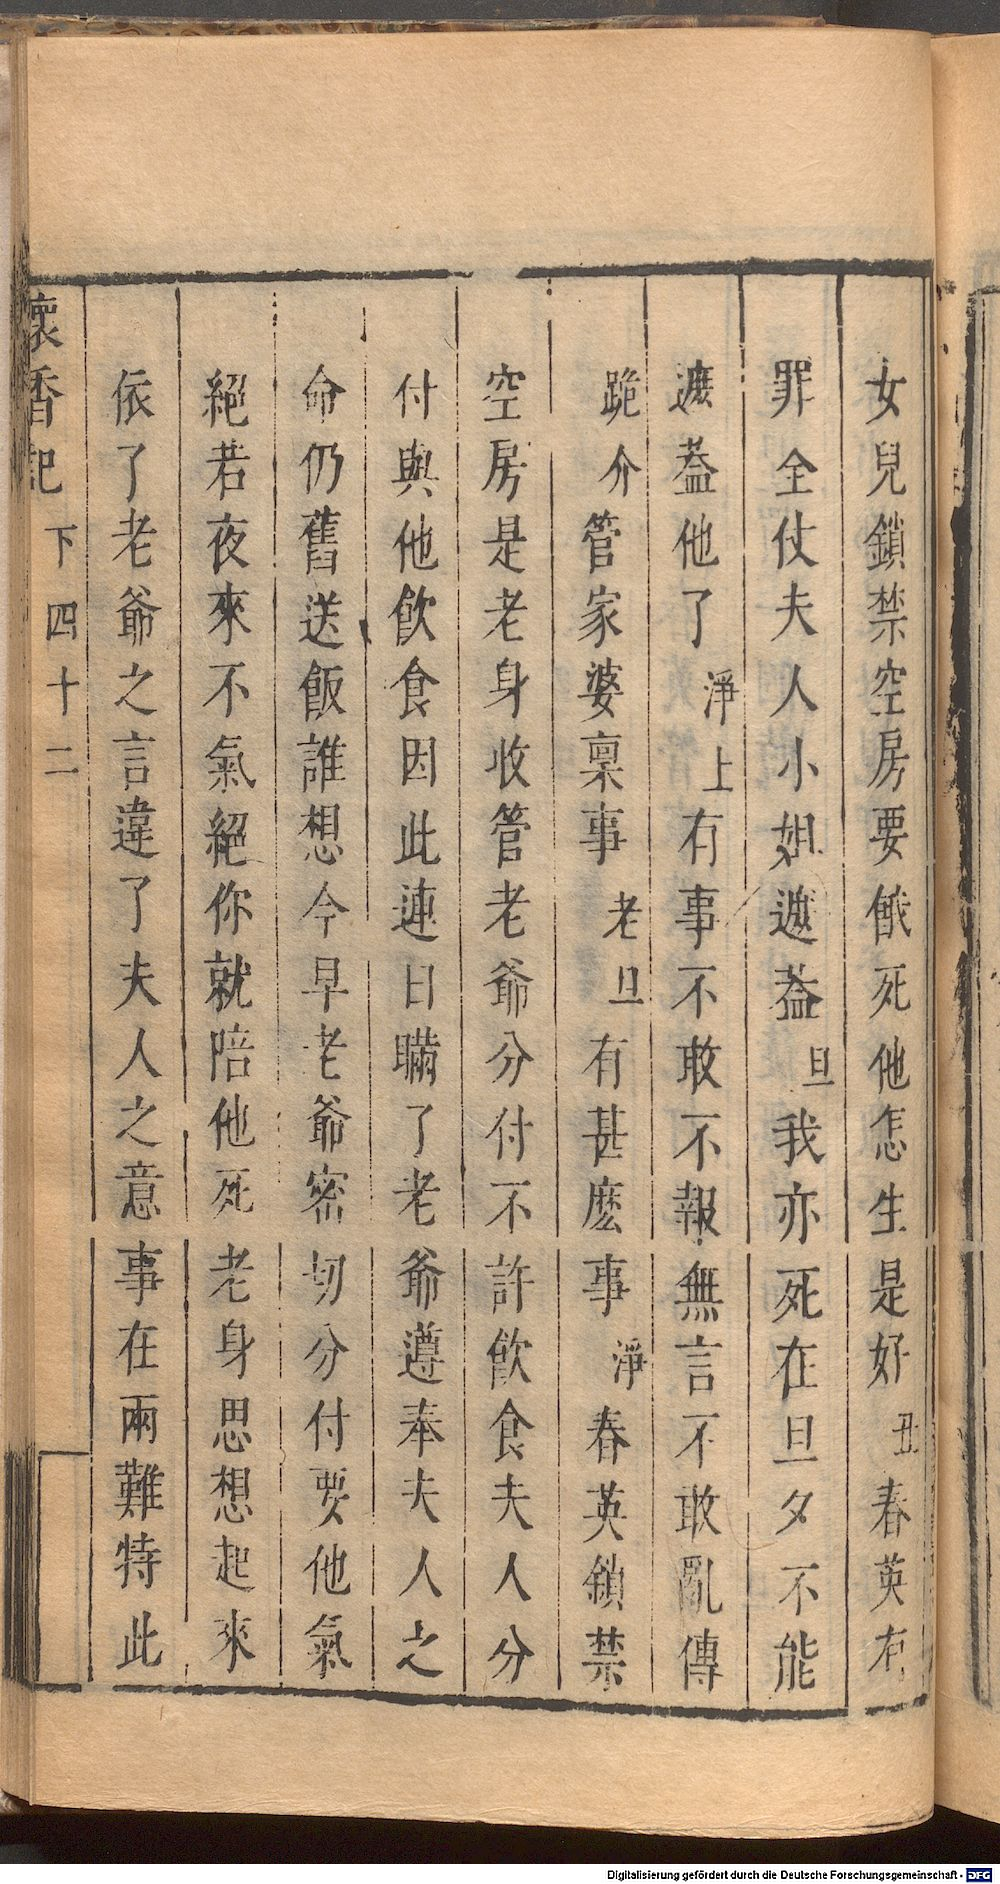 女兒鎖禁空房要餓死他怎生是好 丑 春英有
罪全仗夫人小姐遮葢 旦 我亦死在旦夕不能
遮葢他了 淨上 有事不敢不報無言不敢亂傳
跪介 管家婆稟事 老旦 有甚麽事 淨 春英鎖禁
空房是老身收管老爺分付不許飲食夫人分
付與他飲食因此連日瞞了老爺遵奉夫人之
命仍舊送飯誰想今早老爺密切分付要他氣
絕若夜來不氣絕你就陪他死老身思想起來
依了老爺之言違了夫人之意事在兩難特此
懷香記 下 四十二
Digitalisierung gefördert durch die Deutsche Forschungsgemeinschaft - DFG